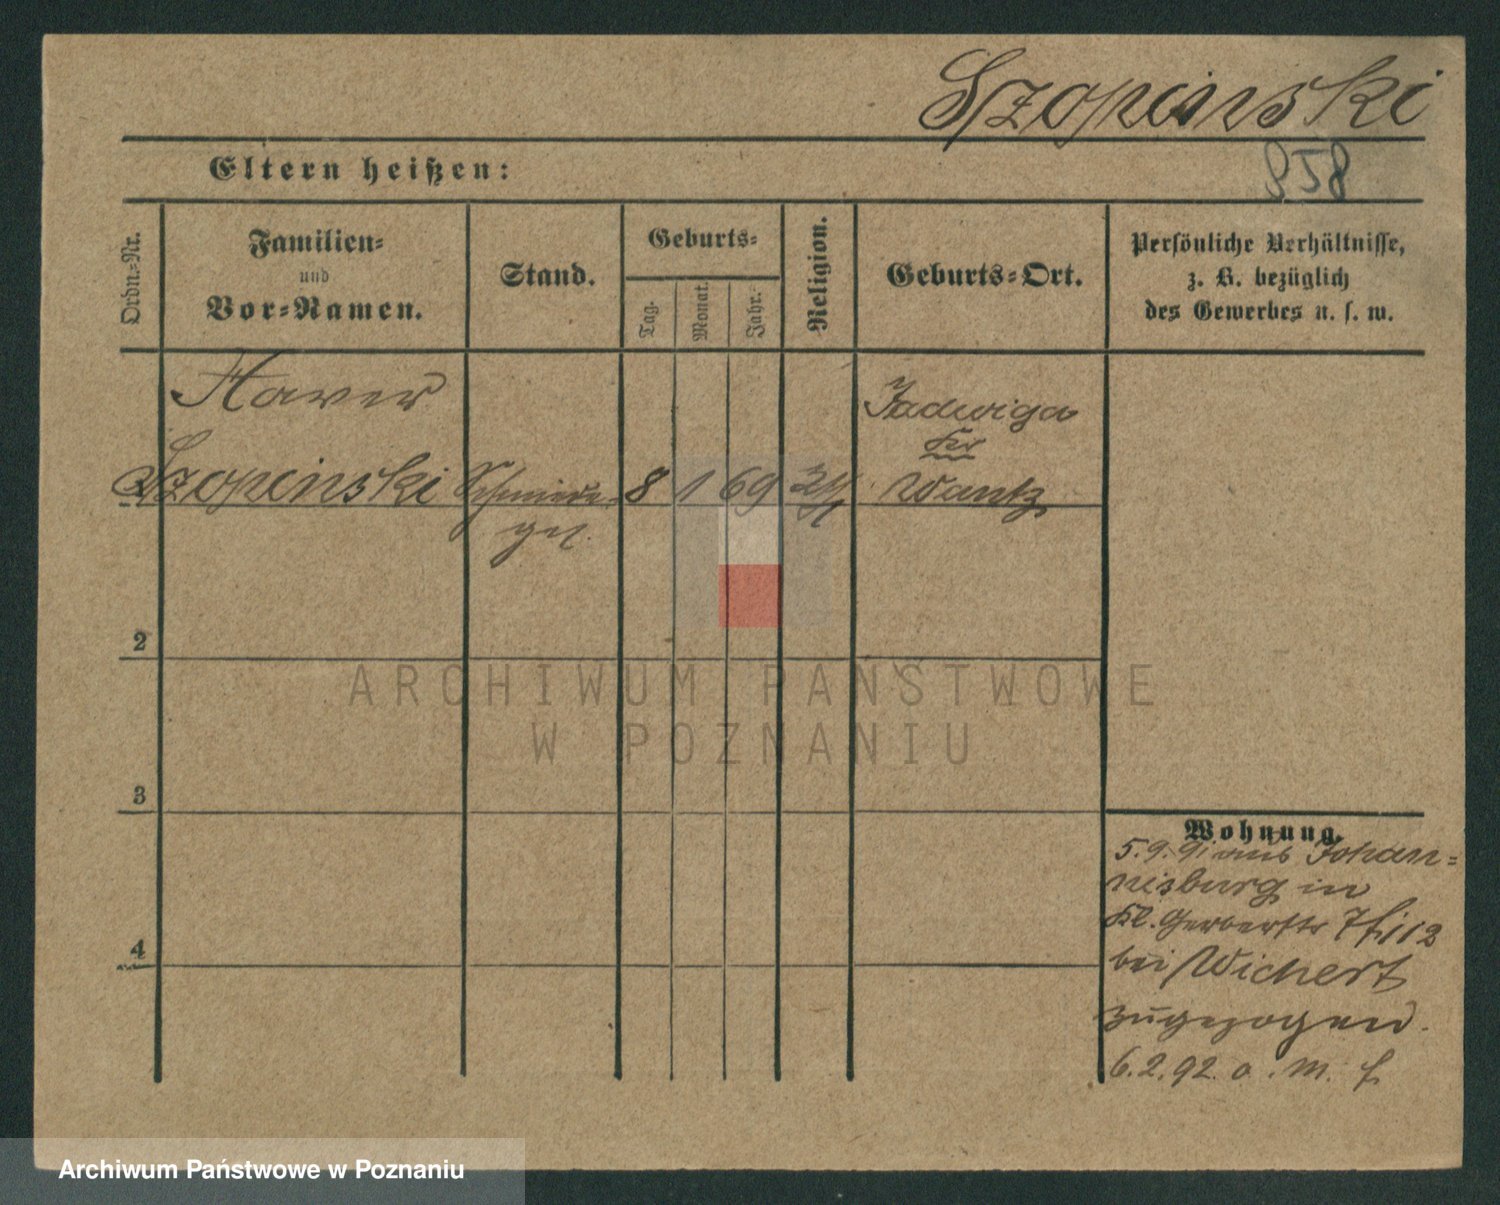 Szopinski
858
Eltern heißen:
Ordn.-Nr.
Familien-
und
Vor-Namen.
Stand.
Geburts-
Tag.
Monat.
Jahr.
Religion.
Geburts-Ort.
Persönliche Verhältnisse,
z. B. bezüglich
des Gewerbes u. s. w.
Xaver
Szopinski
Schmiede-
gel.
8
1
69
Jadwiga
Kr
Wantz
2
3
4
Wohnung.
5.9.91 aus Johan-
nisburg in
Kl. Gerberstr 7
bei Wichert
zugezogen.
6.2.92. o. m. f
ARCHIWUM PAŃSTWOWE
W POZNANIU
Archiwum Państwowe w Poznaniu